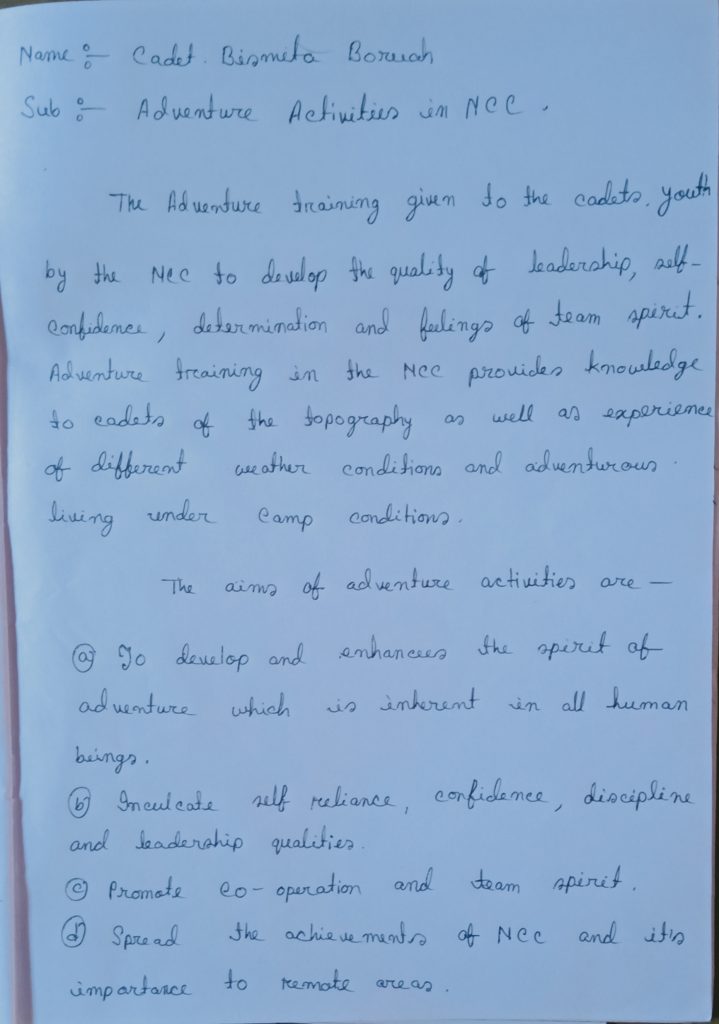 Name :- Cadet. Bismita Boruah
Sub :- Adventure Activities in NCC.
The Adventure training given to the cadets. youth
by the NCC to develop the quality of leadership, self-
confidence, determination and feelings of team spirit.
Adventure training in the NCC provides knowledge
to cadets of the topography as well as experience
of different weather conditions and adventurous
living under camp conditions.
The aims of adventure activities are —
(a) To develop and enhancees the spirit of
adventure which is inherent in all human
beings.
(b) Inculcate self reliance, confidence, discipline
and leadership qualities.
(c) Promote co-operation and team spirit.
(d) Spread the achievements of NCC and it's
importance to remote areas.